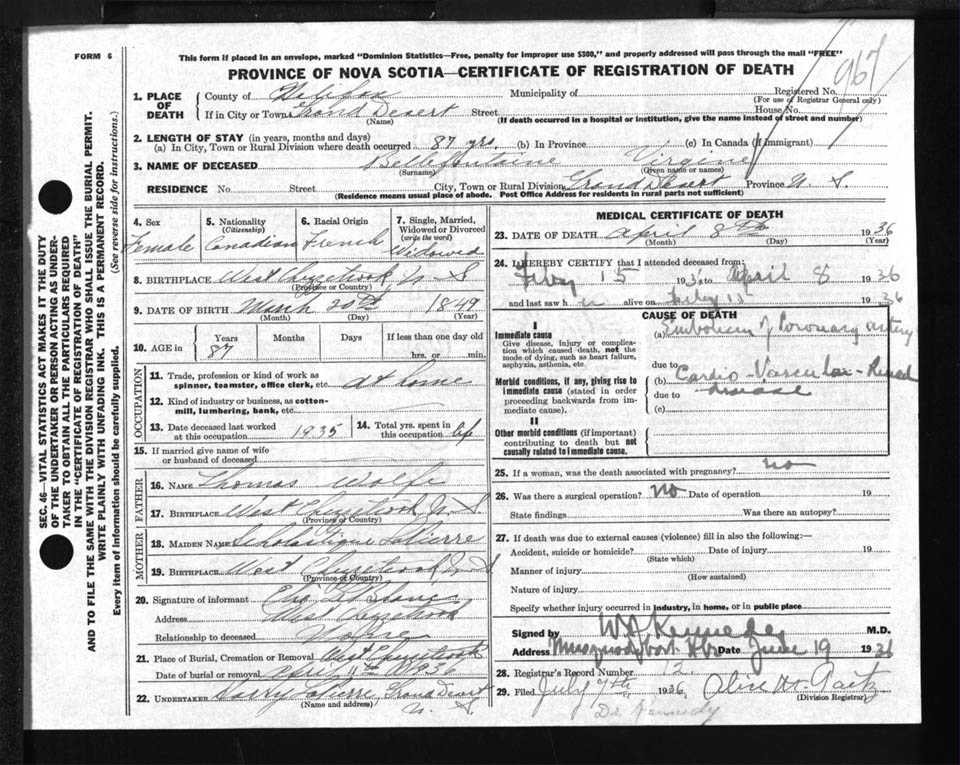 FORM 6
This form if placed in an envelope, marked "Dominion Statistics—Free, penalty for improper use $300," and properly addressed will pass through the mail "FREE"
PROVINCE OF NOVA SCOTIA—CERTIFICATE OF REGISTRATION OF DEATH
967
1. PLACE OF DEATH
County of Halifax Municipality of Registered No.
(For use of Registrar General only)
If in City or Town Grand Desert Street House No.
(Name) (If death occurred in a hospital or institution, give the name instead of street and number)
2. LENGTH OF STAY (in years, months and days)
(a) In City, Town or Rural Division where death occurred 87 yrs. (b) In Province (c) In Canada (if immigrant)
3. NAME OF DECEASED Bellefontaine Virgine
(Surname) (Given name or names)
RESIDENCE No. Street City, Town or Rural Division Grand Desert Province N. S.
(Residence means usual place of abode. Post Office Address for residents in rural parts not sufficient)
4. Sex
Female
5. Nationality
(Citizenship)
Canadian
6. Racial Origin
French
7. Single, Married, Widowed or Divorced
(write the word)
Widowed
8. BIRTHPLACE West Chezzetcook N. S
(Province or Country)
9. DATE OF BIRTH March 1849
(Month) (Day) (Year)
10. AGE in
Years
87
Months
Days
If less than one day old
hrs. or min.
OCCUPATION
11. Trade, profession or kind of work as spinner, teamster, office clerk, etc. at home
12. Kind of industry or business, as cotton-mill, lumbering, bank, etc.
13. Date deceased last worked at this occupation 1935
14. Total yrs. spent in this occupation life
15. If married give name of wife or husband of deceased
FATHER
16. NAME Thomas Wolfe
17. BIRTHPLACE West Chezzetcook, N. S.
(Province or Country)
MOTHER
18. MAIDEN NAME Scholastique LaPierre
19. BIRTHPLACE West Chezzetcook N. S
(Province or Country)
20. Signature of informant
Address West Chezzetcook
Relationship to deceased
21. Place of Burial, Cremation or Removal West Chezzetcook
Date of burial or removal April 1936
22. UNDERTAKER Harry LaPierre Grand Desert
(Name and address) N. S
MEDICAL CERTIFICATE OF DEATH
23. DATE OF DEATH April 8th 1936
(Month) (Day) (Year)
24. I HEREBY CERTIFY that I attended deceased from:
Feby 15 1936 to April 8 1936
and last saw her alive on Feby 15 1936
CAUSE OF DEATH
I
Immediate cause
Give disease, injury or complication which caused death, not the mode of dying, such as heart failure, asphyxia, asthenia, etc.
(a) Embolism of Coronary artery
due to
Morbid conditions, if any, giving rise to immediate cause (stated in order proceeding backwards from immediate cause).
(b) Cardio-Vascular-Renal
due to disease
(c)
II
Other morbid conditions (if important) contributing to death but not causally related to immediate cause.
25. If a woman, was the death associated with pregnancy? no
26. Was there a surgical operation? No Date of operation 19
State findings Was there an autopsy?
27. If death was due to external causes (violence) fill in also the following:—
Accident, suicide or homicide? Date of injury 19
(State which)
Manner of injury
(How sustained)
Nature of injury
Specify whether injury occurred in industry, in home, or in public place
Signed by W A Kennedy M.D.
Address Musquodoboit Hbr Date June 19 1936
28. Registrar's Record Number 12
29. Filed July 7th 1936
(Division Registrar)
Dr. Kennedy
SEC. 46—VITAL STATISTICS ACT MAKES IT THE DUTY
OF THE UNDERTAKER OR PERSON ACTING AS UNDER-
TAKER TO OBTAIN ALL THE PARTICULARS REQUIRED
IN THE "CERTIFICATE OF REGISTRATION OF DEATH"
AND TO FILE THE SAME WITH THE DIVISION REGISTRAR WHO SHALL ISSUE THE BURIAL PERMIT.
WRITE PLAINLY WITH UNFADING INK. THIS IS A PERMANENT RECORD.
Every item of information should be carefully supplied. (See reverse side for instructions.)